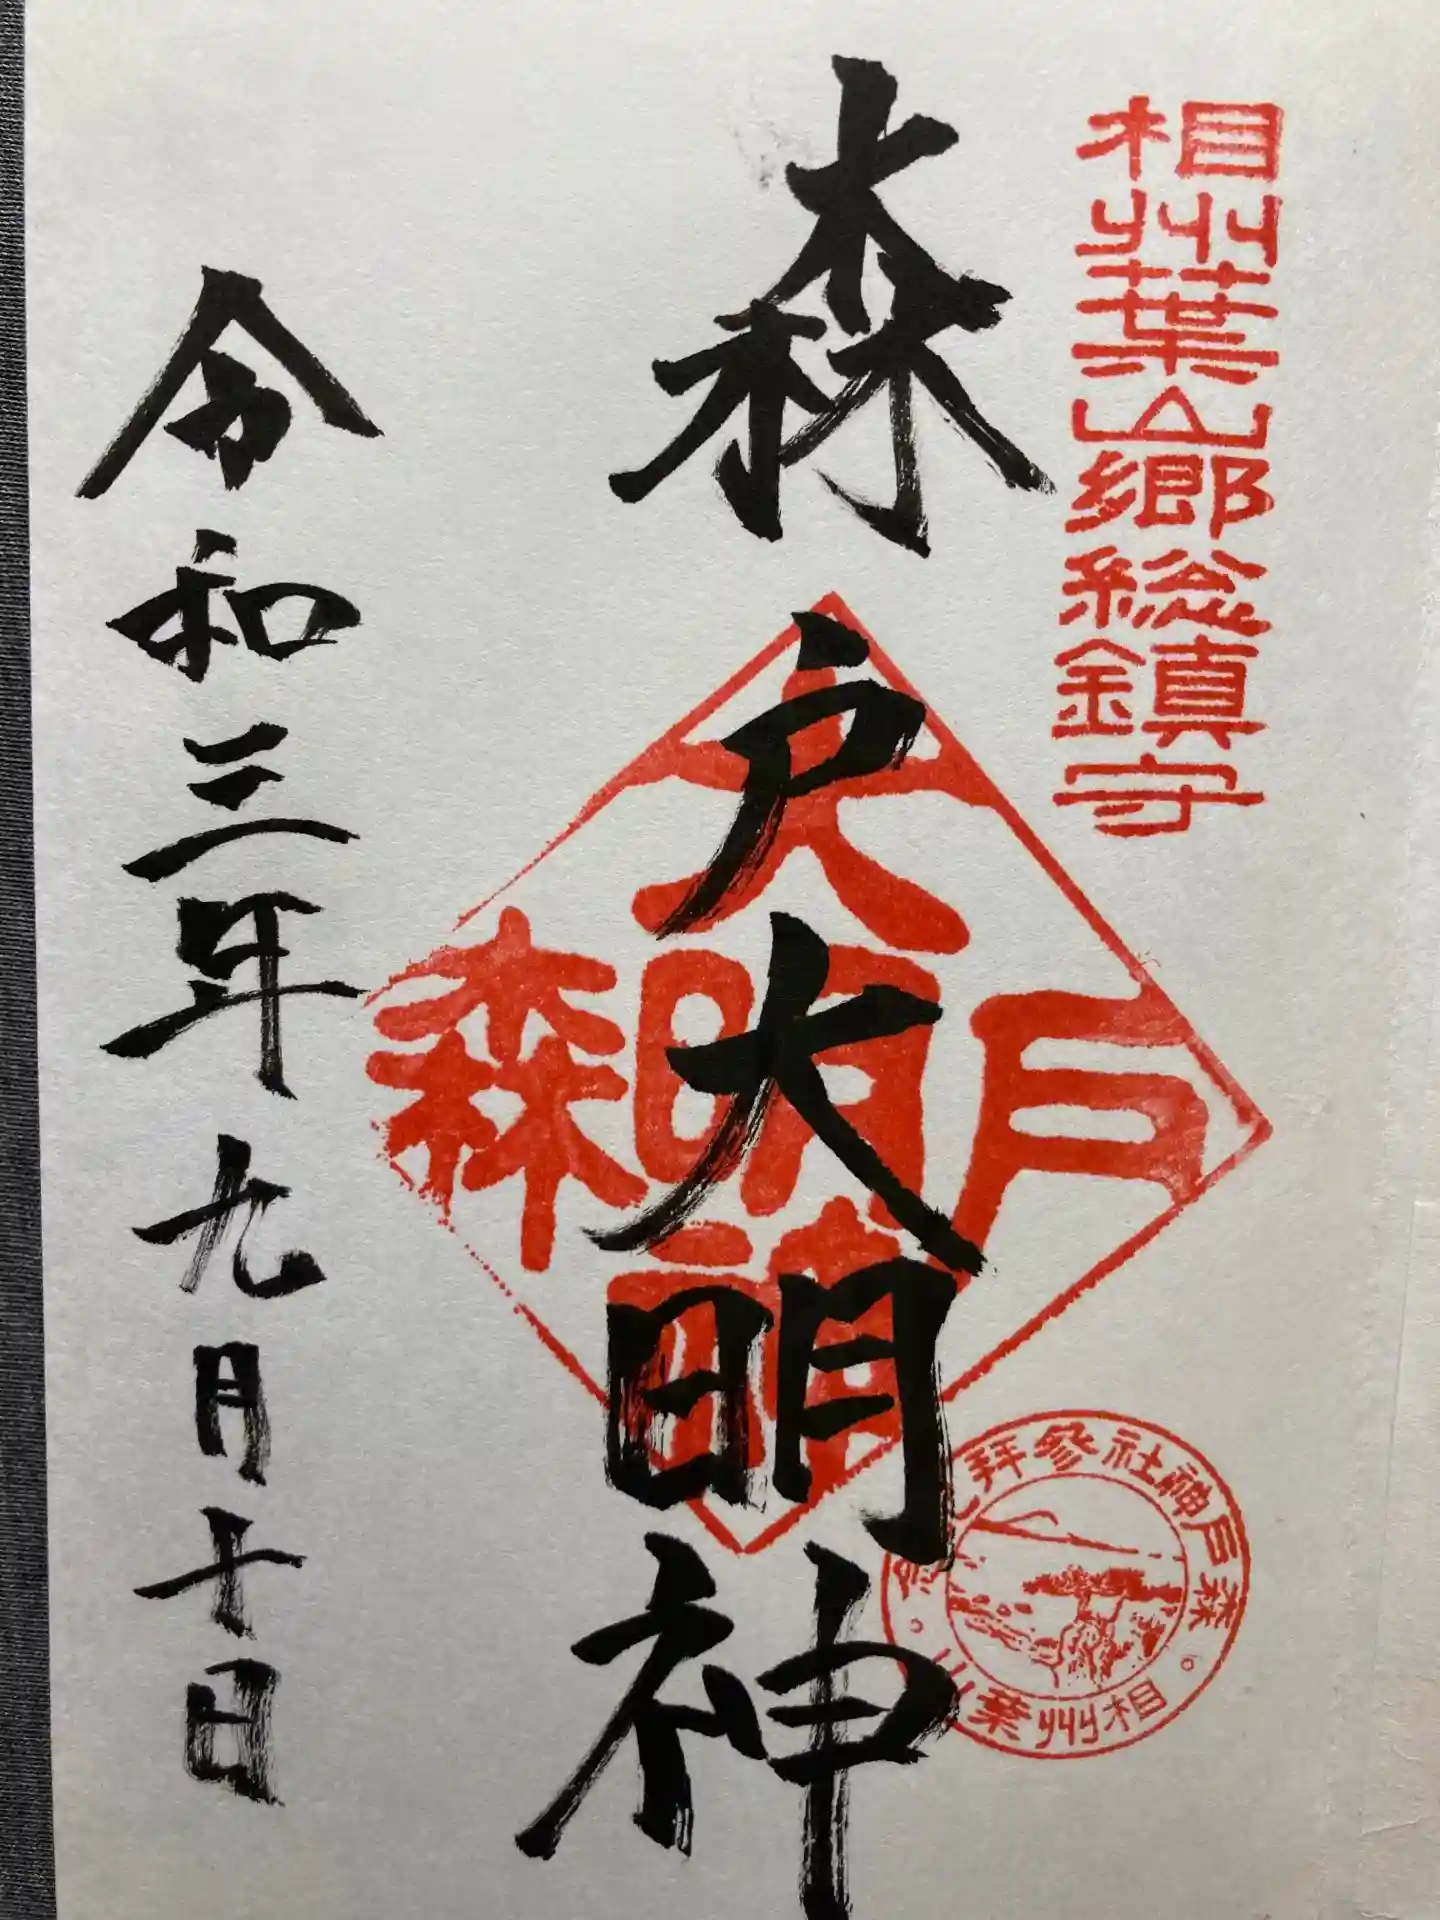 相州葉山郷総鎮守
森戸大明神
大
森明戸
神
森戸神社参拝
相州葉山
令和三年九月十日